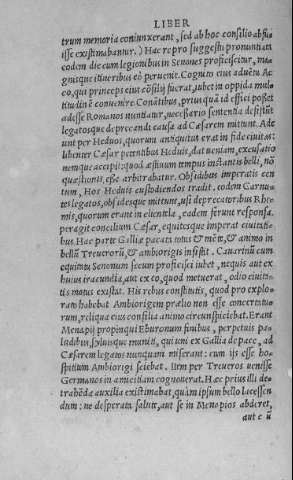 LIBER
trum memoria coniunxerant, sed ab hoc consilio abfu
isse existimabantur.) Hac re pro suggestu pronuntiata
eodem die cum legionibus in Senones proficiscitur, ma
gnisque itineribus eò peruenit. Cognito eius aduētu Ac
co, qui princeps eius cōsilij fuerat, iubet in oppida mul
titudinē conuenire. Conātibus, priusquā id effici posset
adesse Romanos nuntiatur, necessario sententia desistūt
legatosque deprecandi causa ad Cæsarem mittunt. Ade
unt per Heduos, quorum antiquitus erat in fide ciuitas:
libenter Cæsar petentibus Heduis, dat ueniam, excusatio
nemque accepit: quod æstiuum tempus instantis belli, nō
quæstionis, esse arbitrabatur. Obsidibus imperatis cen
tum, Hos Heduis custodiendos tradit. eodem Carnu-
tes legatos, obsidesque mittunt, usi deprecatoribus Rhe
mis, quorum erant in clientela, eadem ferunt responsa.
peragit concilium Cæsar, equitesque imperat ciuitati
bus Hac parte Galliæ pacata totus & mēte, & animo in
bellū Treuerorū, & ambiorigis insistit. Cauarinū cum
equitatu Senonum secum proficisci iubet, nequis aut ex
huius iracundia, aut ex eo, quod meruerat, odio ciuita-
tis motus existat. His rebus constitutis, quod pro explo-
rato habebat Ambiorigem prælio non esse concertatu-
rum, reliqua eius consilia animo circunspiciebat. Erant
Menapij propinqui Eburonum finibus, perpetuis pa-
ludibus, syluisque muniti, qui uni ex Gallia de pace, ad
Cæsarem legatos nunquam miserant: cum ijs esse ho-
spitium Ambiorigi sciebat. Item per Treueros uenisse
Germanos in amicitiam cognouerat. Hæc prius illi de-
trahēda auxilia existimabat, quàm ipsum bello lacessen
dum: ne desperata salute, aut se in Menapios abderet,
aut c ij